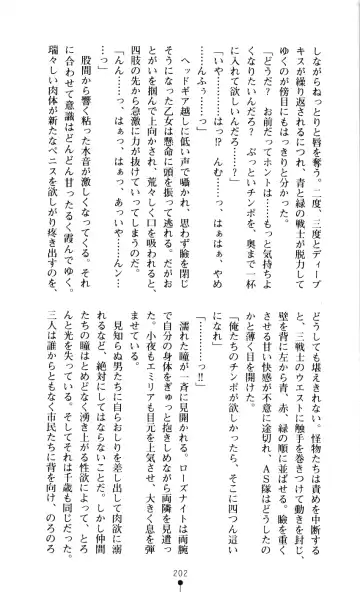 しながらねっとりと唇を奪う。二度、三度とディープ
キスが繰り返されるにつれ、青と緑の戦士が脱力して
ゆくのが傍目にもはっきりと分かった。
「どうだ？　お前だってホントは……もっと気持ちよ
くなりたいんだろ？　ぶっといチンポを、奥まで一杯
に入れて欲しいんだろ……？」
「いや……はっ!?　んむ……っ、はぁはぁ、やめ
……んふぅ……っ」
　ヘッドギア越しに低い声で囁かれ、思わず瞼を閉じ
そうになった乙女は懸命に頭を振って逃れる。だがお
とがいを掴んで上向かされ、荒々しく口を吸われると、
四肢の先から急激に力が抜けていってしまうのだ。
「んん……っ、はぁっ、はぁっ、あっいや……ムン
……っ」
　股間から響く粘った水音が激しくなってくる。それ
に合わせて意識はどんどん甘ったるく霞んでゆく。
瑞々しい肉体が新たなペニスを欲しがり疼き出すのを、
どうしても堪えきれない。怪物たちは責めを中断する
と、三戦士のウエストに触手を巻きつけて動きを封じ、
壁を背に左から青、赤、緑の順に並ばせる。瞼を重く
させる甘い快感が不意に途切れ、ＡＳ隊はどうしたの
かと薄く目を開けた。
「俺たちのチンポが欲しかったら、そこに四つん這い
になれ」
「……っ!!」
　濡れた瞳が一斉に見開かれる。ローズナイトは両腕
で自分の身体をぎゅっと抱きしめながら両隣を見遣っ
た。小夜もエミリアも目元を上気させ、大きく息を弾
ませている。
　見知らぬ男たちに自らおしりを差し出して肉欲に溺
れるなど、絶対にしてはならないことだ。しかし仲間
たちの瞳はとめどなく湧き上がる性欲によって、とろ
んと光を失っている。そしてそれは千歳も同じだった。
三人は誰からともなく市民たちに背を向け、のろのろ
202